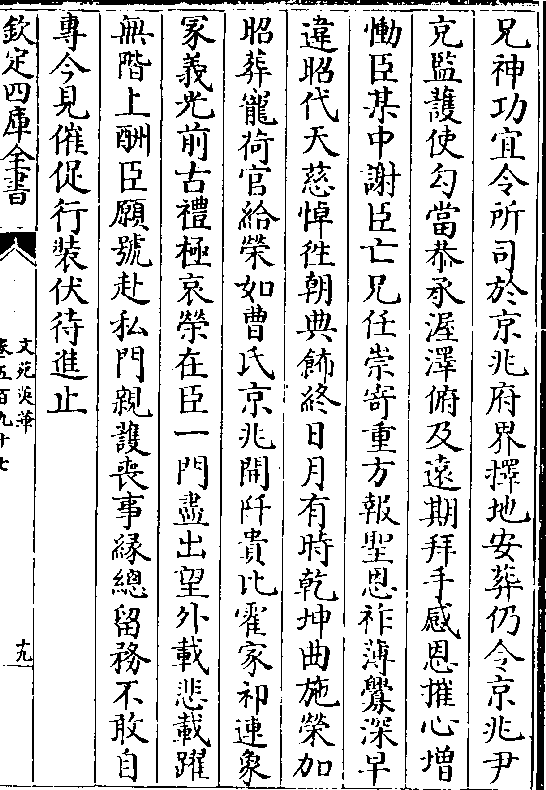 兄神功宜令所司於京兆府界擇地安葬仍令京兆尹
充監護使勾當恭承渥澤俯及遠期拜手感恩摧心增
慟臣某中謝臣亡兄任崇寄重方報聖恩祚薄舋深早
違昭代天慈悼徃朝典飾終日月有時乾坤曲施榮加
昭葬寵荷官給榮如曹氏京兆開阡貴比霍家祁連象
冢義光前古禮極哀榮在臣一門盡出望外載悲載躍
無階上酬臣願號赴私門親護喪事縁總留務不敢自
專今見催促行装伏待進止
欽定四庫全書
文苑英華
卷五百九十七
十九